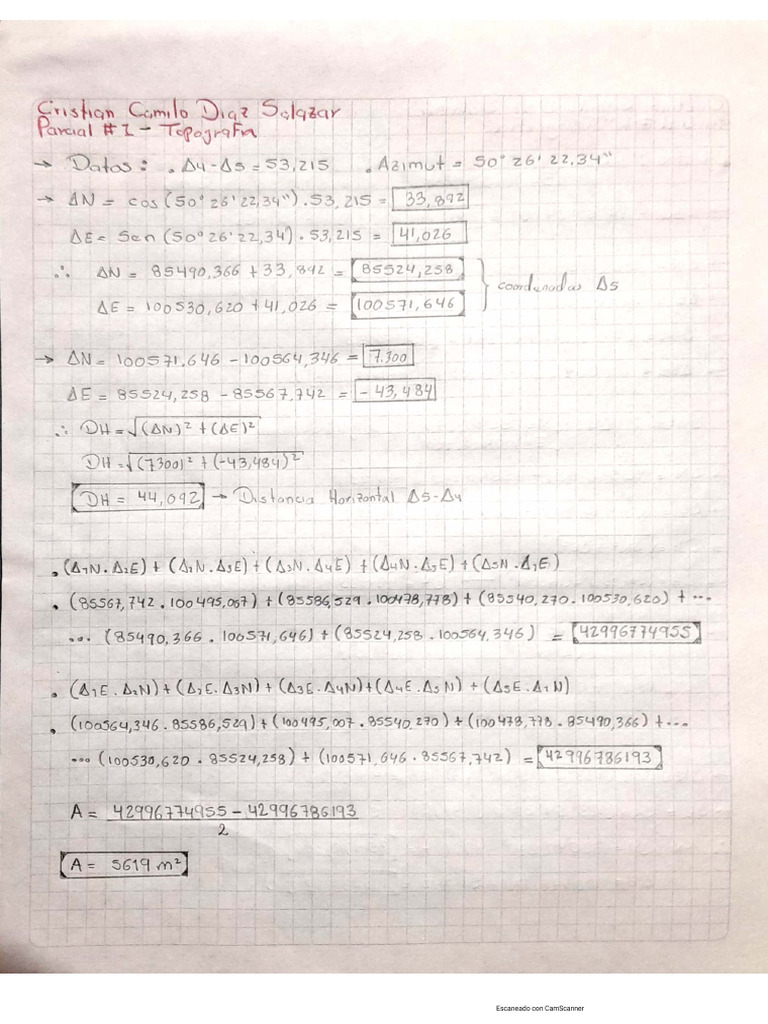 Cristian Camilo Diaz Salazar
Parcial #1 - Topografia
→ Datos: . Δ4-Δ5 = 53,215 . Azimut = 50° 26' 22,34"
→ ΔN = cos (50° 26' 22,34") . 53,215 = 33,892
ΔE = Sen (50° 26' 22,34') . 53,215 = 41,026
∴ ΔN = 85490,366 + 33,892 = 85524,258
ΔE = 100530,620 + 41,026 = 100571,646
} coordenadas Δ5
→ ΔN = 100571,646 - 100564,346 = 7.300
ΔE = 85524,258 - 85567,742 = - 43,484
∴ DH = √(ΔN)² + (ΔE)²
DH = √(7300)² + (-43,484)²
DH = 44,092 → Distancia Horizontal Δ5-Δ4
. (Δ1N . Δ2E) + (Δ2N . Δ3E) + (Δ3N . Δ4E) + (Δ4N . Δ5E) + (Δ5N . Δ1E)
. (85567,742 . 100495,007) + (85586,529 . 100478,778) + (85540,270 . 100530,620) + ...
... (85490,366 . 100571,646) + (85524,258 . 100564,346) = 42996774955
. (Δ1E . Δ2N) + (Δ2E . Δ3N) + (Δ3E . Δ4N) + (Δ4E . Δ5N) + (Δ5E . Δ1N)
. (100564,346 . 85586,529) + (100495,007 . 85540,270) + (100478,778 . 85490,366) + ...
... (100530,620 . 85524,258) + (100571,646 . 85567,742) = 42996786193
A = 42996774955 - 42996786193
2
A = 5619 m²
Escaneado con CamScanner